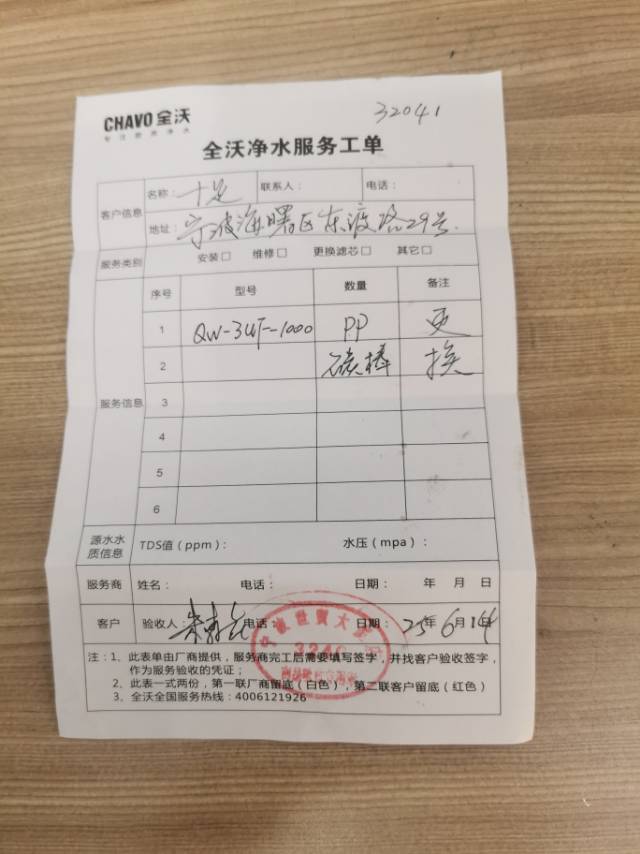 CHAVO 全沃
专注健康净水
32041
全沃净水服务工单
客户信息
名称：十足 联系人： 电话：
地址：宁波海曙区东渡路29号
服务类别 安装□ 维修□ 更换滤芯□ 其它□
服务信息
序号 型号 数量 备注
1 QW-3UF-1000 PP 更
2 碳棒 换
3
4
5
6
源水水质信息 TDS值（ppm）： 水压（mpa）：
服务商 姓名： 电话： 日期： 年 月 日
客户 验收人： 电话： 日期：25年6月14
注：1、此表单由厂商提供，服务商完工后需要填写签字，并找客户验收签字，
作为服务验收的凭证；
2、此表一式两份，第一联厂商留底（白色），第二联客户留底（红色）
3、全沃全国服务热线：4006121926